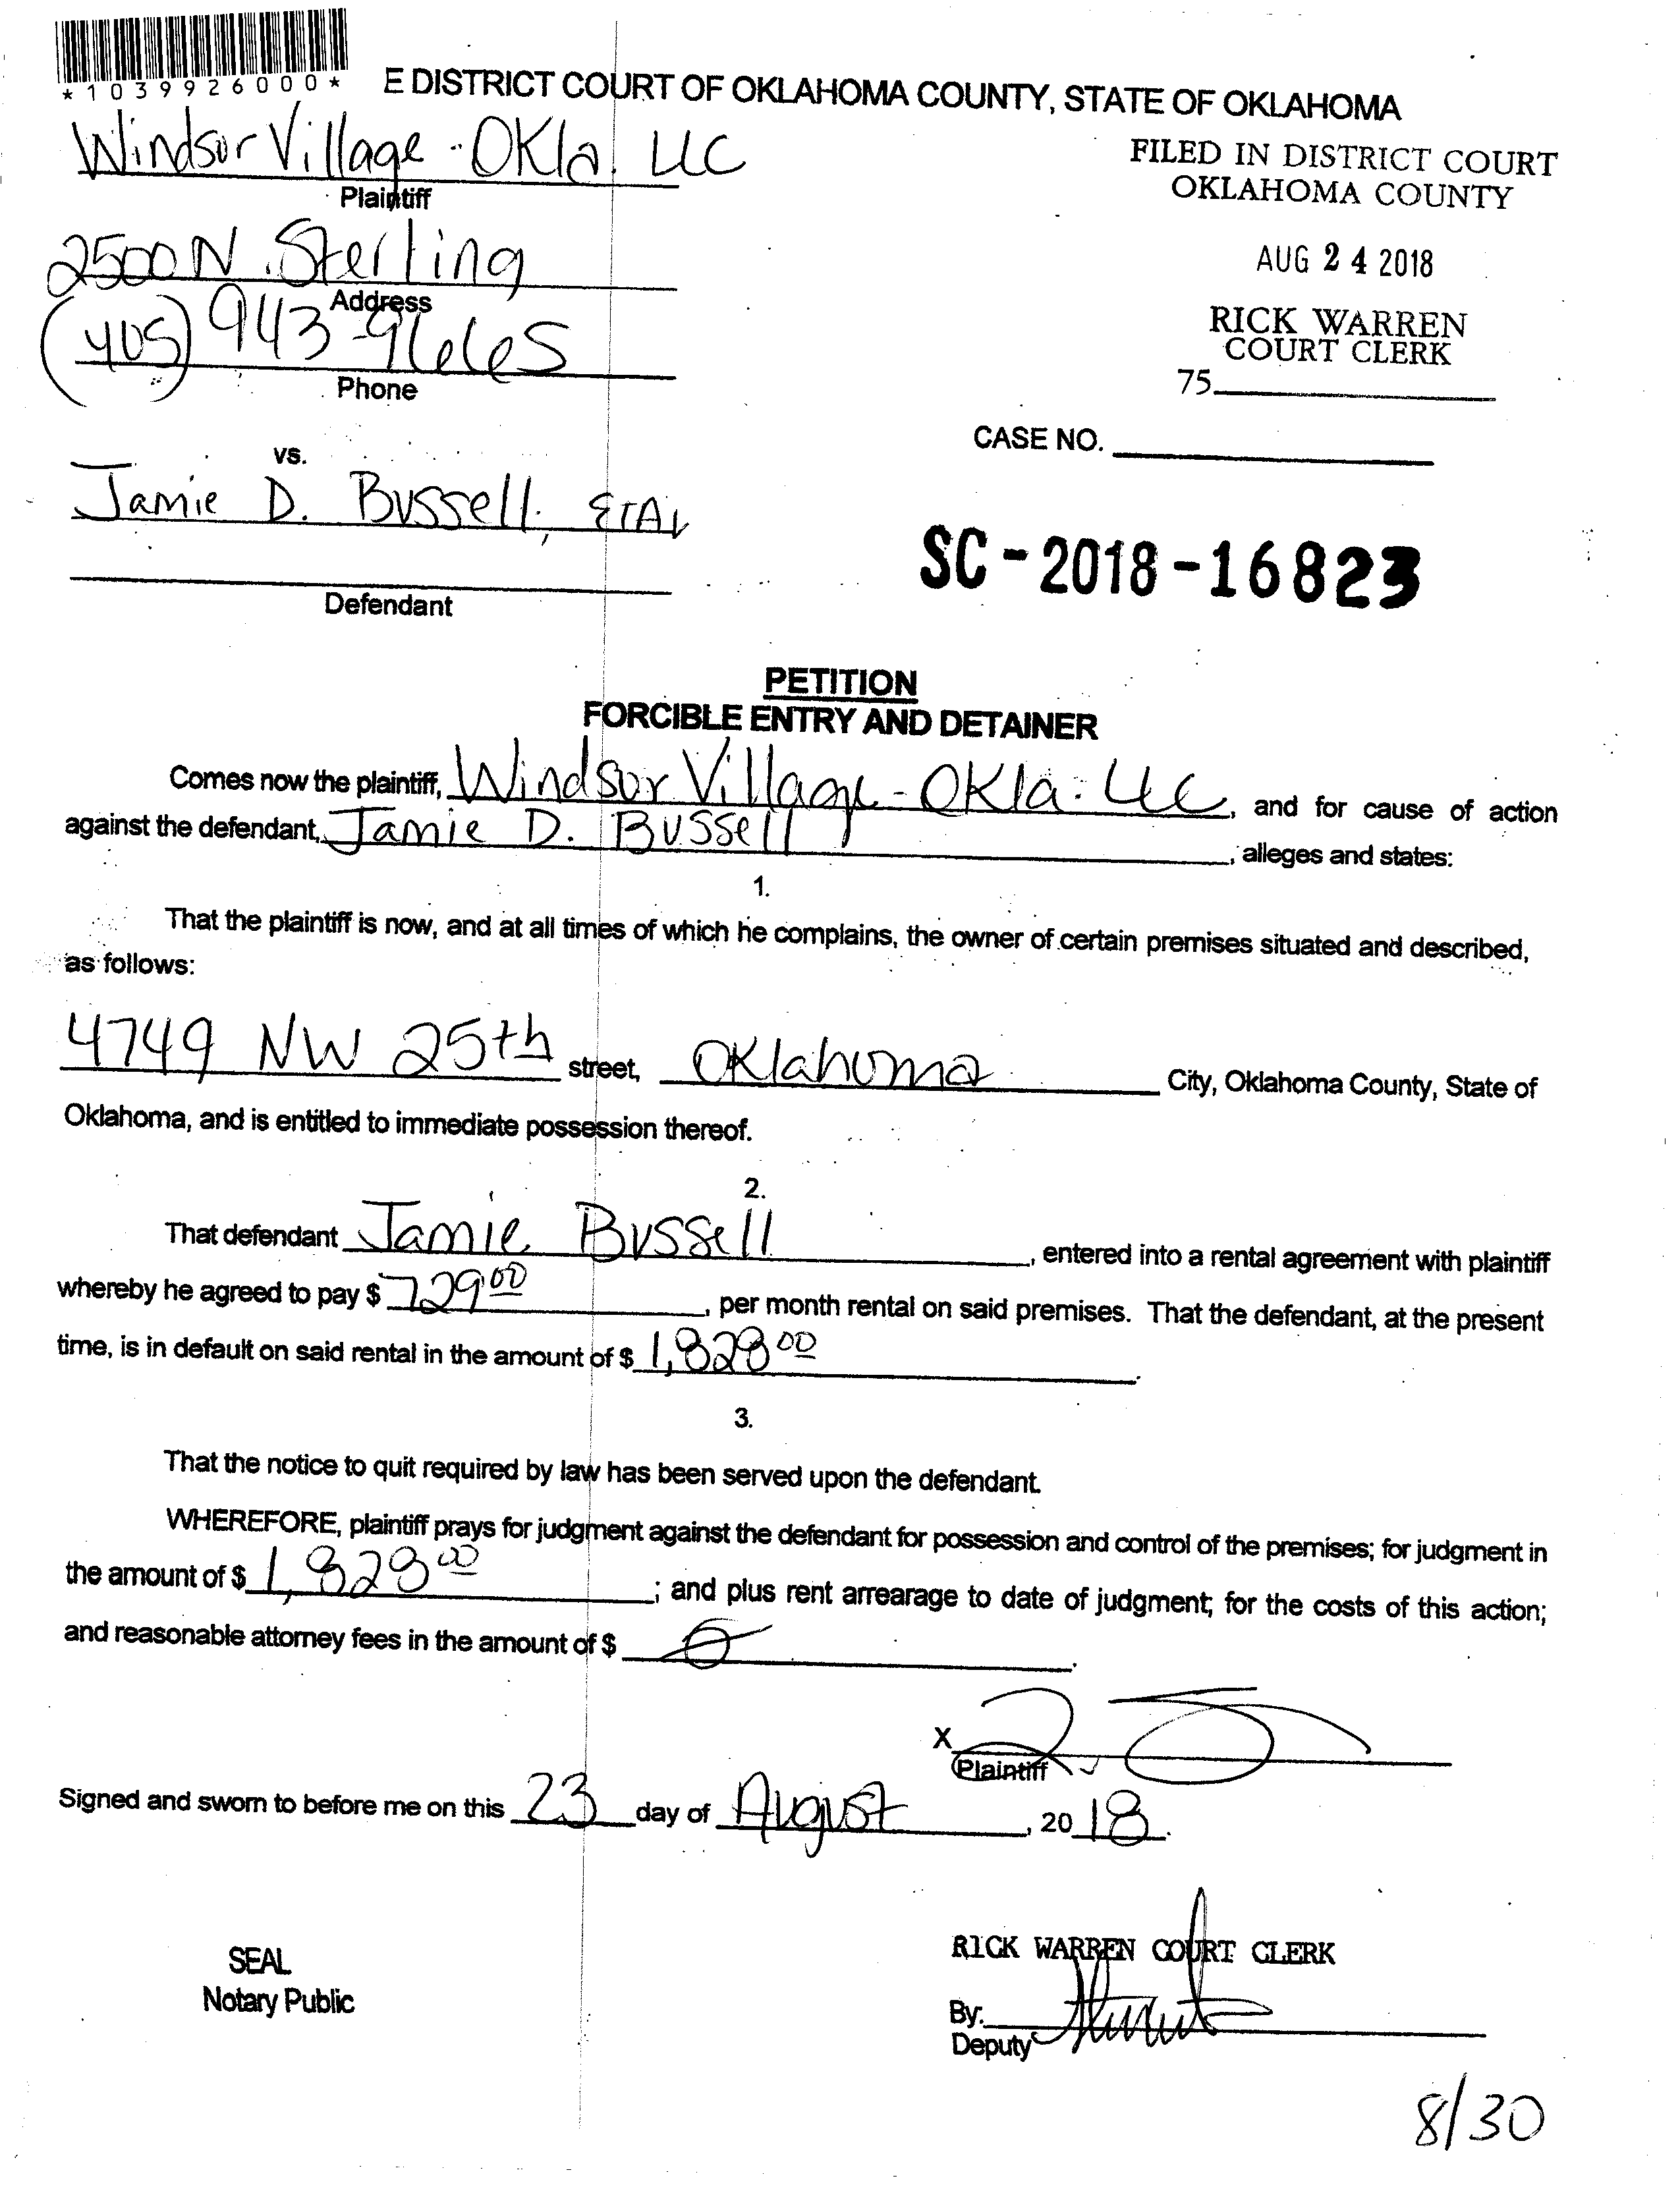 *1039926000*
E DISTRICT COURT OF OKLAHOMA COUNTY, STATE OF OKLAHOMA
Windsor Village - OKla. LLC
Plaintiff
FILED IN DISTRICT COURT
OKLAHOMA COUNTY
2500 N. Sterling
Address
AUG 24 2018
(405) 943-9665
Phone
RICK WARREN
COURT CLERK
75
CASE NO.
vs.
Jamie D. Bussell, ETAL
Defendant
SC-2018-16823
PETITION
FORCIBLE ENTRY AND DETAINER
Comes now the plaintiff, Windsor Village - OKla. LLC, and for cause of action
against the defendant, Jamie D. Bussell, alleges and states:
1.
That the plaintiff is now, and at all times of which he complains, the owner of certain premises situated and described,
as follows:
4749 NW 25th street, Oklahoma City, Oklahoma County, State of
Oklahoma, and is entitled to immediate possession thereof.
2.
That defendant Jamie Bussell, entered into a rental agreement with plaintiff
whereby he agreed to pay $ 729 00, per month rental on said premises. That the defendant, at the present
time, is in default on said rental in the amount of $ 1,828 00.
3.
That the notice to quit required by law has been served upon the defendant.
WHEREFORE, plaintiff prays for judgment against the defendant for possession and control of the premises; for judgment in
the amount of $ 1,828 00; and plus rent arrearage to date of judgment; for the costs of this action;
and reasonable attorney fees in the amount of $ 0.
X
Plaintiff
Signed and sworn to before me on this 23 day of August, 2018.
RICK WARREN COURT CLERK
SEAL
Notary Public
By:
Deputy
8/30